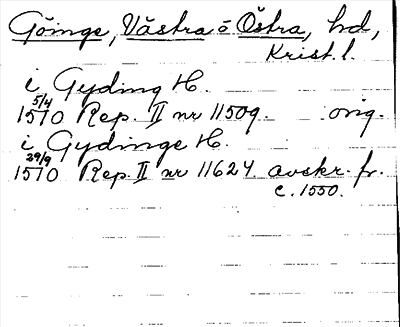 Göinge, Västra o Östra, hd,
Krist. l.
i Gyding H.
5/4
1510 Rep. II nr 11509. orig.
i Gydinge H.
29/9
1510 Rep. II nr 11624. avskr. fr.
c. 1550.